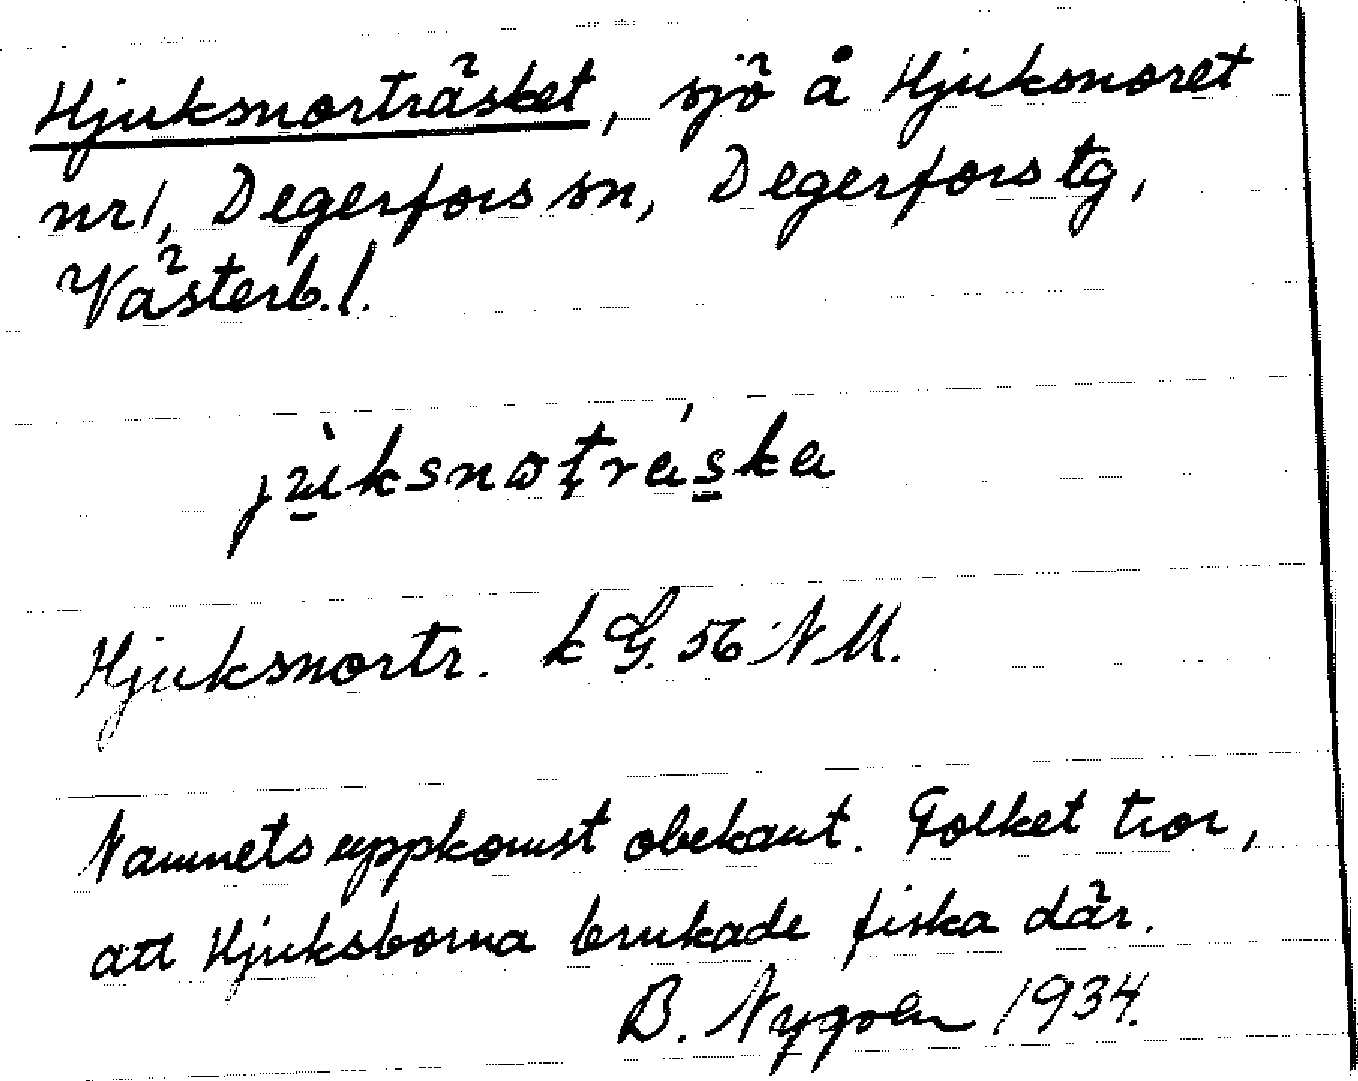 Hjuksnorträsket, sjö å Hjuksnoret
nr 1, Degerfors sn, Degerfors tg,
Västerb. l.
Hjuksnortr. k G. 56 N M.
Namnets uppkomst obekant. Folket tror,
att Hjuksborna brukade fiska där.
B. Nygren 1934.